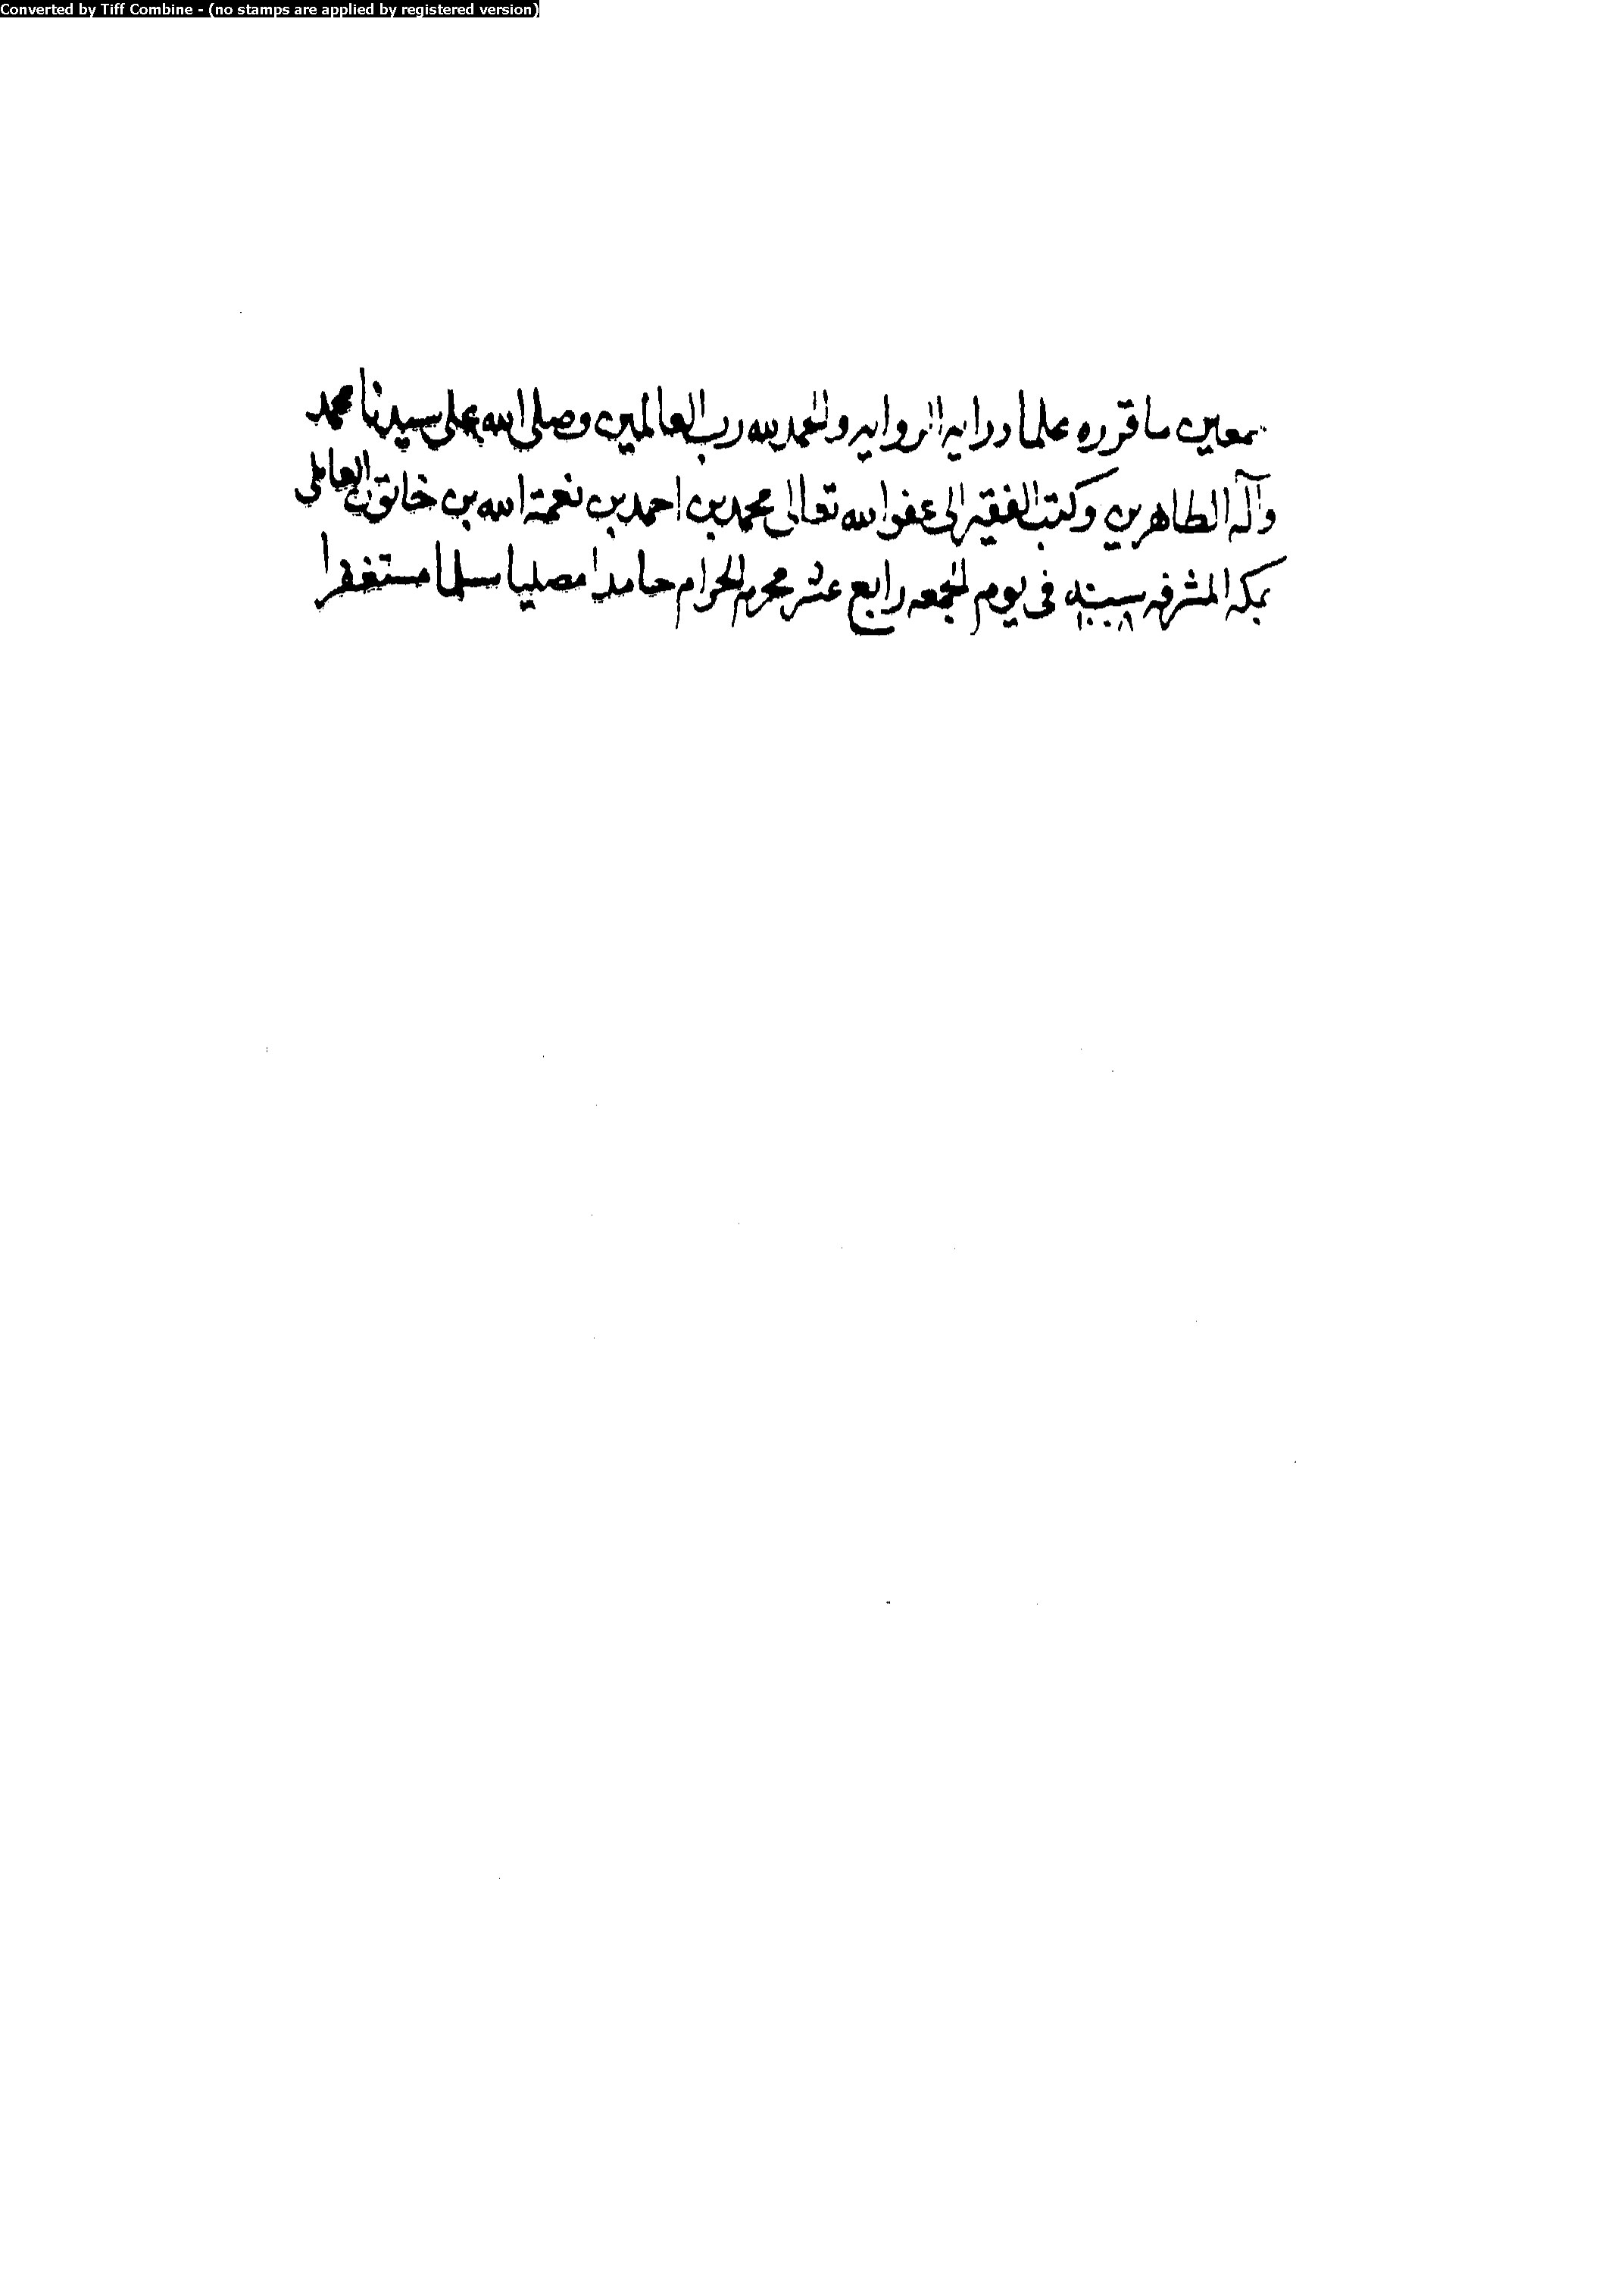 Converted by Tiff Combine - (no stamps are applied by registered version)
بمعاين ما قرره علما درايه الروايه والحمد لله رب العالمين وصلى الله على سيدنا محمد
وآله الطاهرين وكتب الفقير الى عفو الله تعالى محمد بن احمد بن نعمة الله بن خاتون العاملي
بمكه المشرفه سنه ١٠٠٨ فى يوم الجمعه رابع عشر محرم الحرام حامدا مصليا مسلما مستغفرا